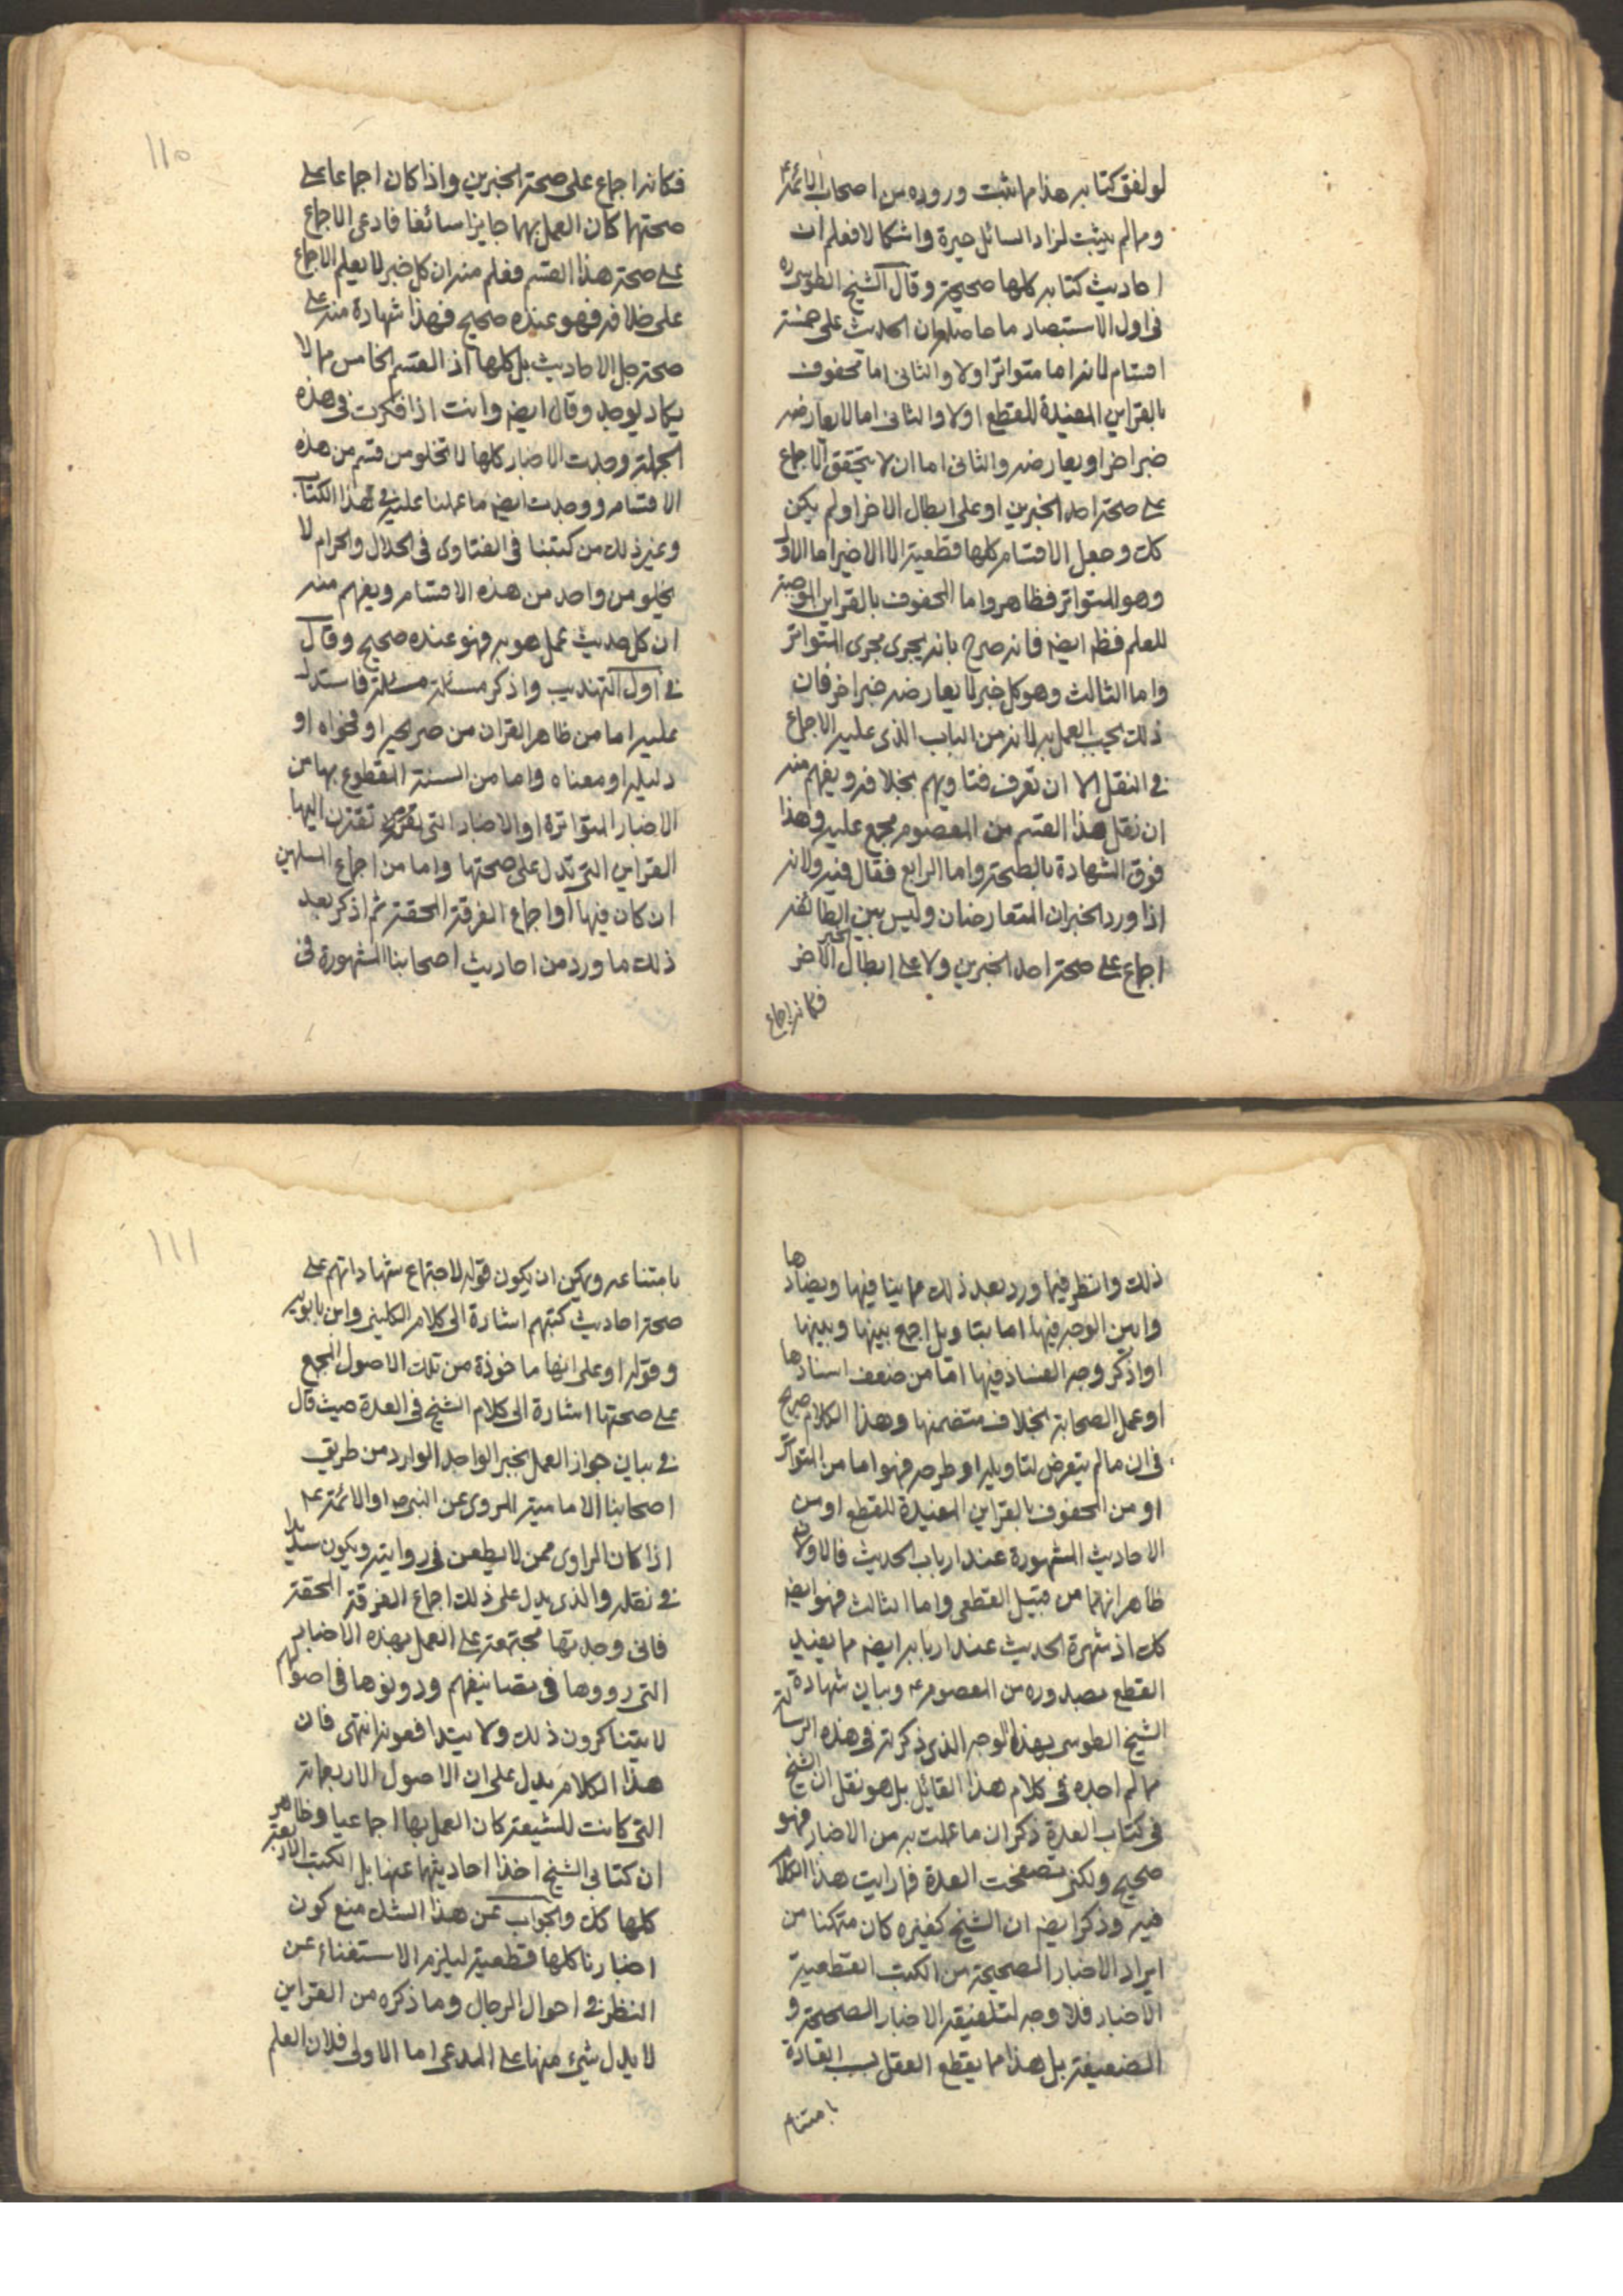 لو لفق كتابه هذا مما ثبت وروده من اصحاب الائمة ع
ومما لم يثبت لزاد السائل حيرة واشكالا فعلم ان
احاديث كتابه كلها صحيحة وقال الشيخ الطوسى ره
فى اول الاستبصار ما حاصله ان الحديث على خمسة
اقسام لانه اما متواتر اولا والثانى اما محفوف
بالقراين المفيدة للقطع اولا والثانى اما لا يعارضه
خبر اخر او يعارضه والثانى اما ان لا يتحقق الاجماع
على صحة احد الخبرين او على ابطال الاخر او لم يكن
كك وجعل الاقسام كلها قطعية الا الاخير اما الاول
وهو المتواتر فظاهر واما المحفوف بالقراين الموجبة
للعلم فظ ايضه فانه صرح بانه يجرى مجرى المتواتر
واما الثالث وهو كل خبر لا يعارضه خبر اخر فان
ذلك يجب العمل به لانه من الباب الذى عليه الاجماع
فى النقل الا ان تعرف فتاويهم بخلافه ويفهم منه
ان نقل هذا القسم من المعصوم مجمع عليه وهذا
فوق الشهادة بالصحة واما الرابع فقال فيه ولانه
اذا ورد الخبران المتعارضان وليس بين الطائفه
اجماع على صحة احد الخبرين ولا على ابطال الخبر الاخر
فكانه اجماع
١١٠
فكانه اجماع على صحة الخبرين واذا كان اجماعا على
صحتهما كان العمل بهما جايزا سائغا فادعى الاجماع
على صحة هذا القسم فعلم منه ان كل خبر لا يعلم الاجماع
على خلافه فهو عنده صحيح فهذا شهادة منه على
صحة جل الاحاديث بل كلها اذ القسم الخامس مما لا
يكاد يوجد وقال ايضه وانت اذا فكرت فى هذه
الجملة وجدت الاخبار كلها لا تخلو من قسم من هذه
الاقسام ووجدت ايضه ما عملنا عليه فى هذا الكتاب
وغير ذلك من كتبنا فى الفتاوى فى الحلال والحرام لا
يخلو من واحد من هذه الاقسام ويفهم منه
ان كل حديث عمل هو به فهو عنده صحيح وقال
فى اول التهذيب واذكر مسئلة مسئلة فاستدل
عليها اما من ظاهر القران من صريحه او فحواه او
دليله او معناه واما من السنة المقطوع بها من
الاخبار المتواترة او الاخبار التى تقترن اليها
القراين التى تدل على صحتها واما من اجماع المسلمين
ان كان فيها او اجماع الفرقة المحقة ثم اذكر بعد
ذلك ما ورد من احاديث اصحابنا المشهورة فى
ذلك وانظر فيما ورد بعد ذلك مما ينافيها ويضادها
وابين الوجه فيها اما بتاويل اجمع بينها وبينها
او اذكر وجه الفساد فيها اما من ضعف اسنادها
او عمل الصحابة بخلاف متضمنها وهذا الكلام صريح
فى ان ما لم يتعرض لتاويله او طرحه فهو اما من المتواتر
او من المحفوف بالقراين المفيدة للقطع او من
الاحاديث المشهورة عند ارباب الحديث فالاولان
ظاهر انهما من قبيل القطعى واما الثالث فهو ايضه
كك اذ شهرة الحديث عند اربابه ايضه مما يفيد
القطع بصدوره من المعصوم ع وبيان شهادة
الشيخ الطوسى بهذا الوجه الذى ذكرته فى هذه الرسالة
مما لم اجده فى كلام هذا القائل بل هو نقل ان الشيخ
فى كتاب العدة ذكر ان ما عملت به من الاخبار فهو
صحيح ولكنى تصفحت العدة فما رايت هذا الكلام
فيه وذكر ايضه ان الشيخ كغيره كان متمكنا من
ايراد الاخبار الصحيحة من الكتب القطعية
الاخبار فلا وجه لتلفيقه الاخبار الصحيحة و
الضعيفة بل هذا مما يقطع العقل بسبب العادة
بامتناع
١١١
بامتناعه ويمكن ان يكون قوله لاجتماع شهاداتهم على
صحة احاديث كتبهم اشارة الى كلام الكلينى وابن بابويه
وقوله او على انها ماخوذة من تلك الاصول المجمع
على صحتها اشارة الى كلام الشيخ فى العدة حيث قال
فى بيان جواز العمل بخبر الواحد الوارد من طريق
اصحابنا الامامية المروى عن النبى ص او الائمة ع
اذا كان الراوى ممن لا يطعن فى روايته ويكون سديدا
فى نقله والذى يدل على ذلك اجماع الفرقة المحقة
فانى وجدتها مجتمعة على العمل بهذه الاخبار
التى رووها فى تصانيفهم ودونوها فى اصولهم
لا يتناكرون ذلك ولا يتدافعونه انتهى فان
هذا الكلام يدل على ان الاصول الاربعمائة
التى كانت للشيعة كان العمل بها اجماعيا وظاهر
ان كتابى الشيخ اخذا احاديثهما عنها بل الكتب الاربعة
كلها كك والجواب عن هذا الشك منع كون
اخبارنا كلها قطعية ليلزم الاستغناء عن
النظر فى احوال الرجال وما ذكره من القراين
لا يدل شىء منها على المدعى اما الاولى فلان العلم